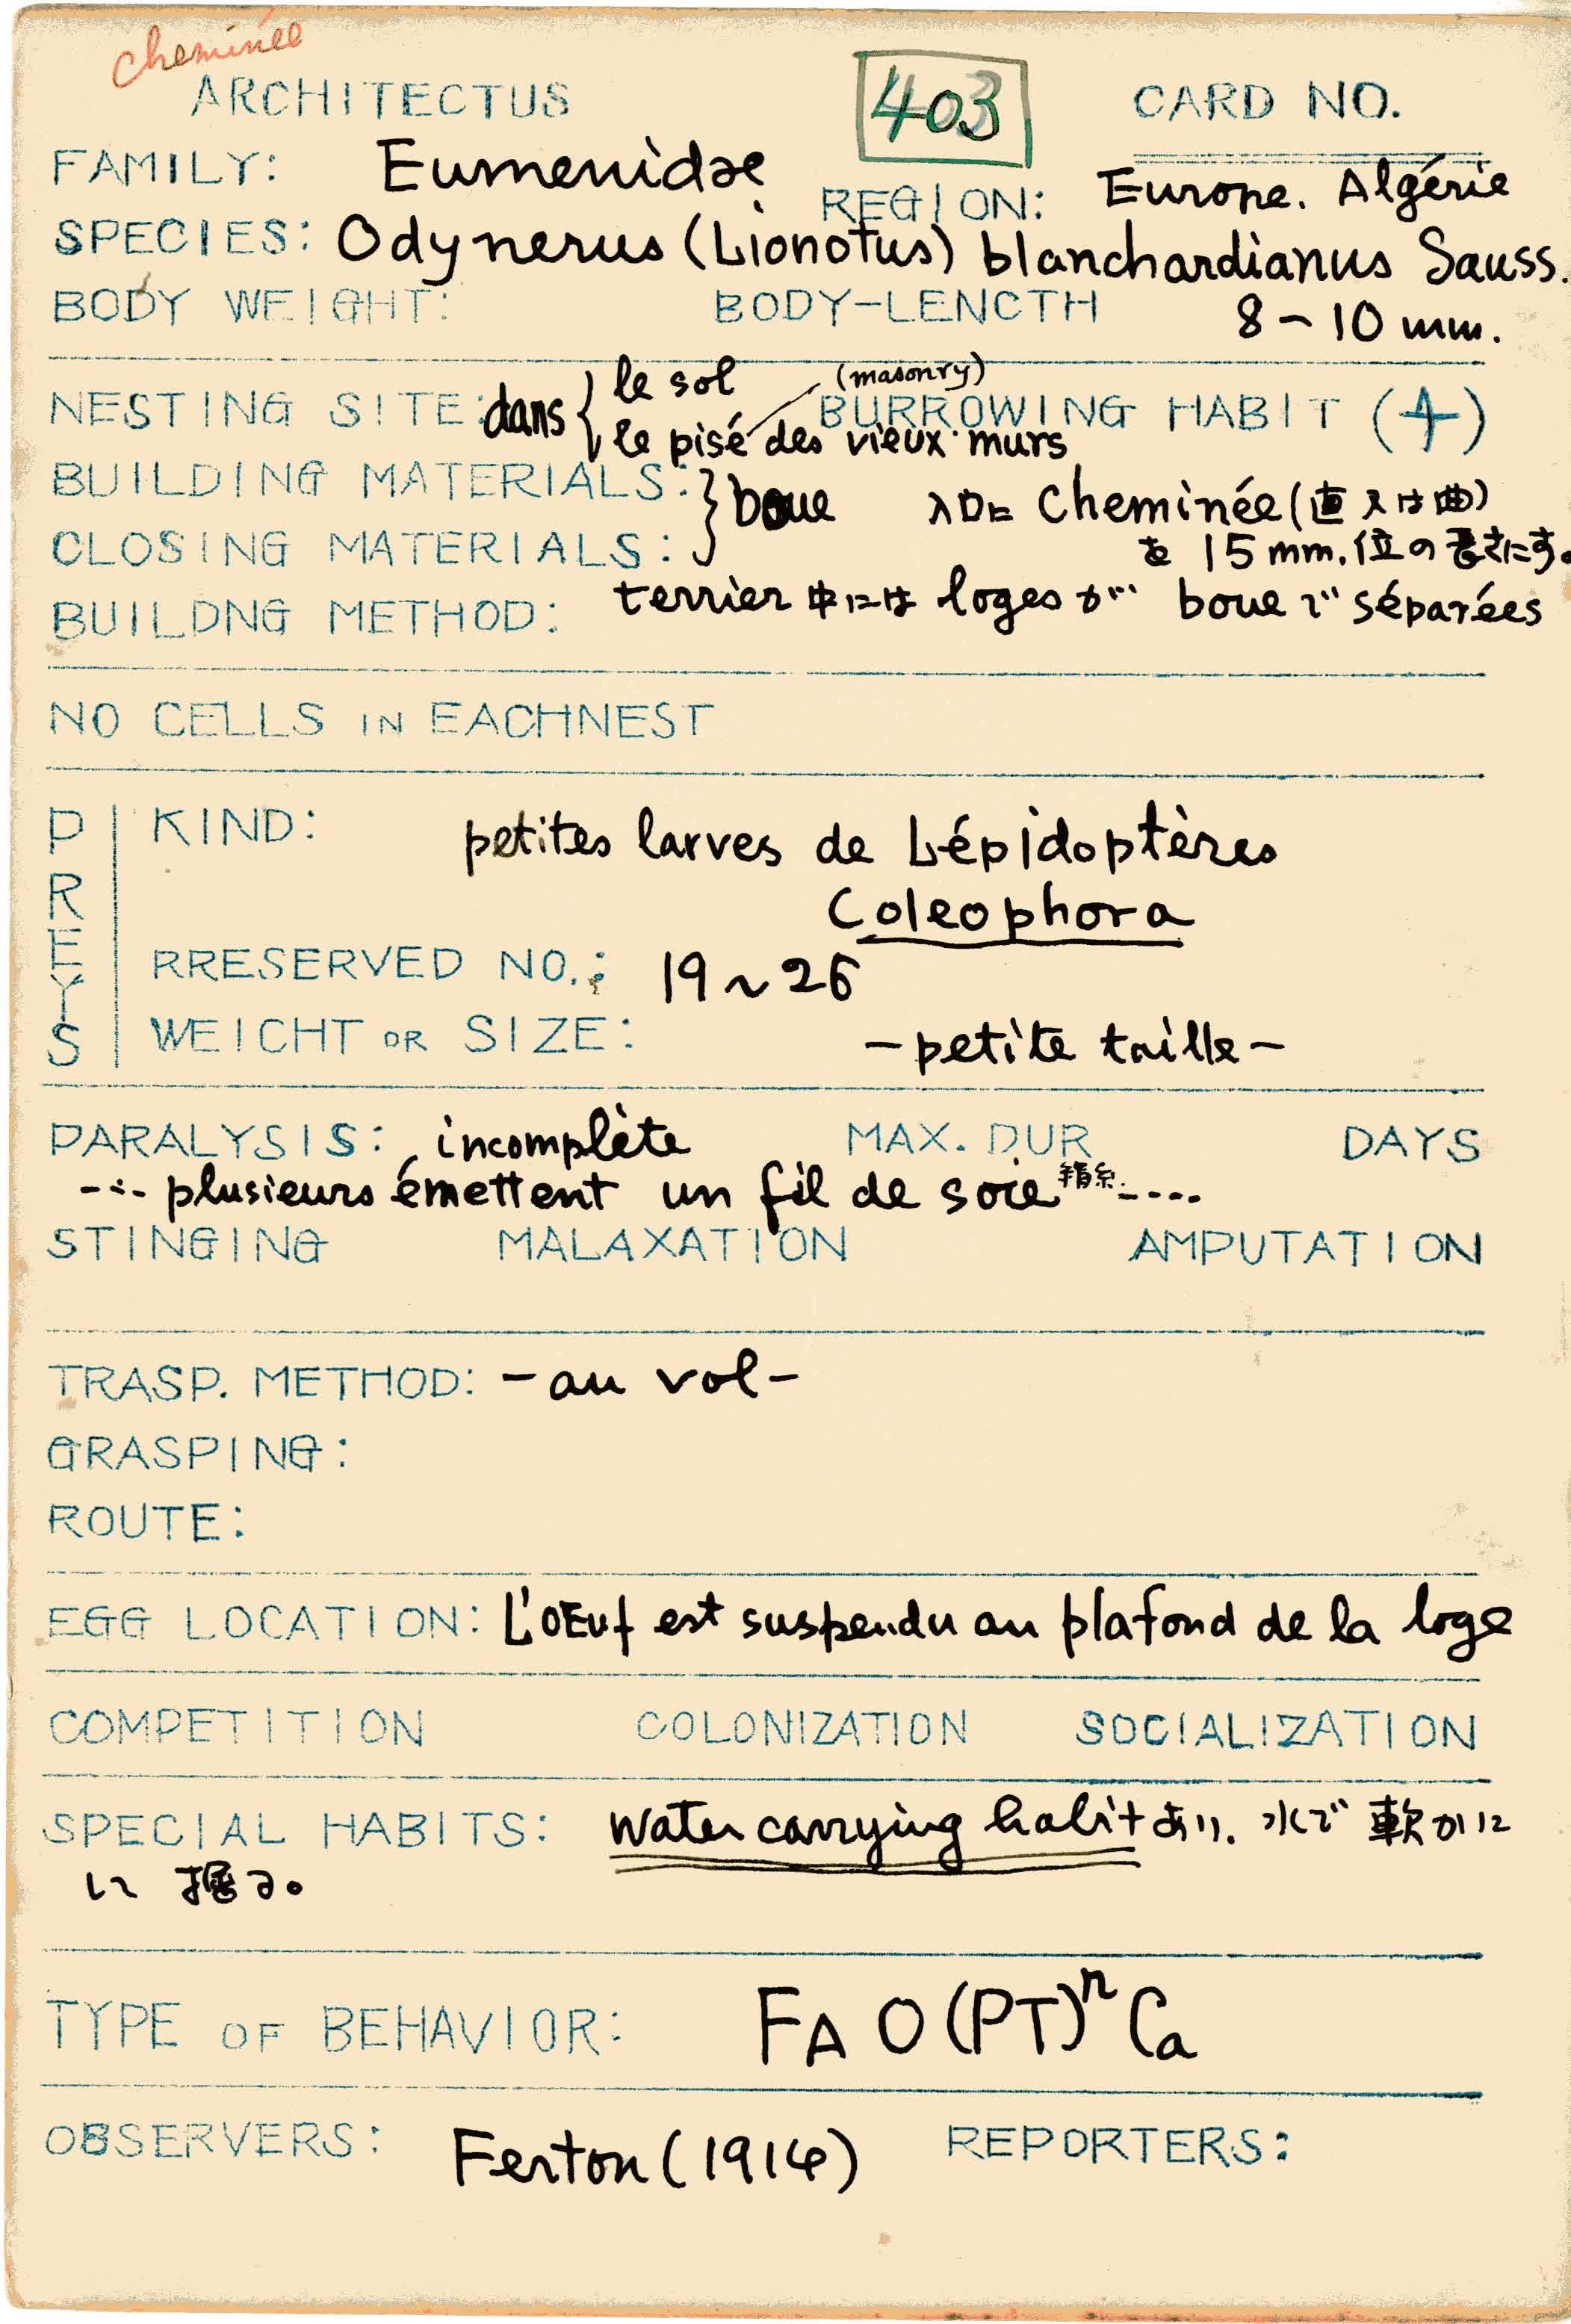 cheminée
ARCHITECTUS 403 CARD NO.
FAMILY: Eumenidae REGION: Europe. Algérie
SPECIES: Odynerus (Lionotus) blanchardianus Sauss.
BODY WEIGHT: BODY-LENGTH 8-10 mm.
NESTING SITE: dans { le sol (masonry) BURROWING HABIT (+)
le pisé des vieux murs
BUILDING MATERIALS: } boue 入口に cheminée (直又は曲)
CLOSING MATERIALS: を 15 mm. 位の長さにす。
BUILDNG METHOD: terrier 中には loges が boue で séparées
NO CELLS IN EACHNEST
PREYS
KIND: petites larves de Lépidoptères
Coleophora
RRESERVED NO.: 19~26
WEICHT OR SIZE: -petite taille-
PARALYSIS: incomplète MAX. DUR DAYS
--- plusieurs émettent un fil de soie 絹糸 ----
STINGING MALAXATION AMPUTATION
TRASP. METHOD: -au vol-
GRASPING:
ROUTE:
EGG LOCATION: L'OEuf est suspendu au plafond de la loge
COMPETITION COLONIZATION SOCIALIZATION
SPECIAL HABITS: Water carrying habit あり. 水で 軟かに
して 掘る。
TYPE OF BEHAVIOR: FA O (PT)ⁿ Ca
OBSERVERS: Ferton (1914) REPORTERS: